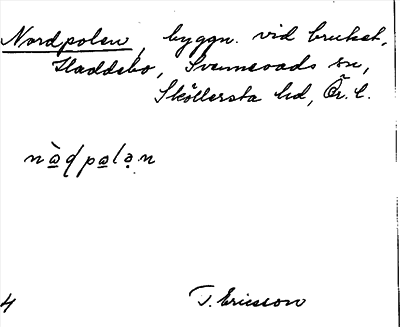 Nordpolen, byggn. vid bruket,
Haddebo, Svennevads sn,
Sköllersta hd, Ör. l.
nòd̨polən
4
T. Ericsson